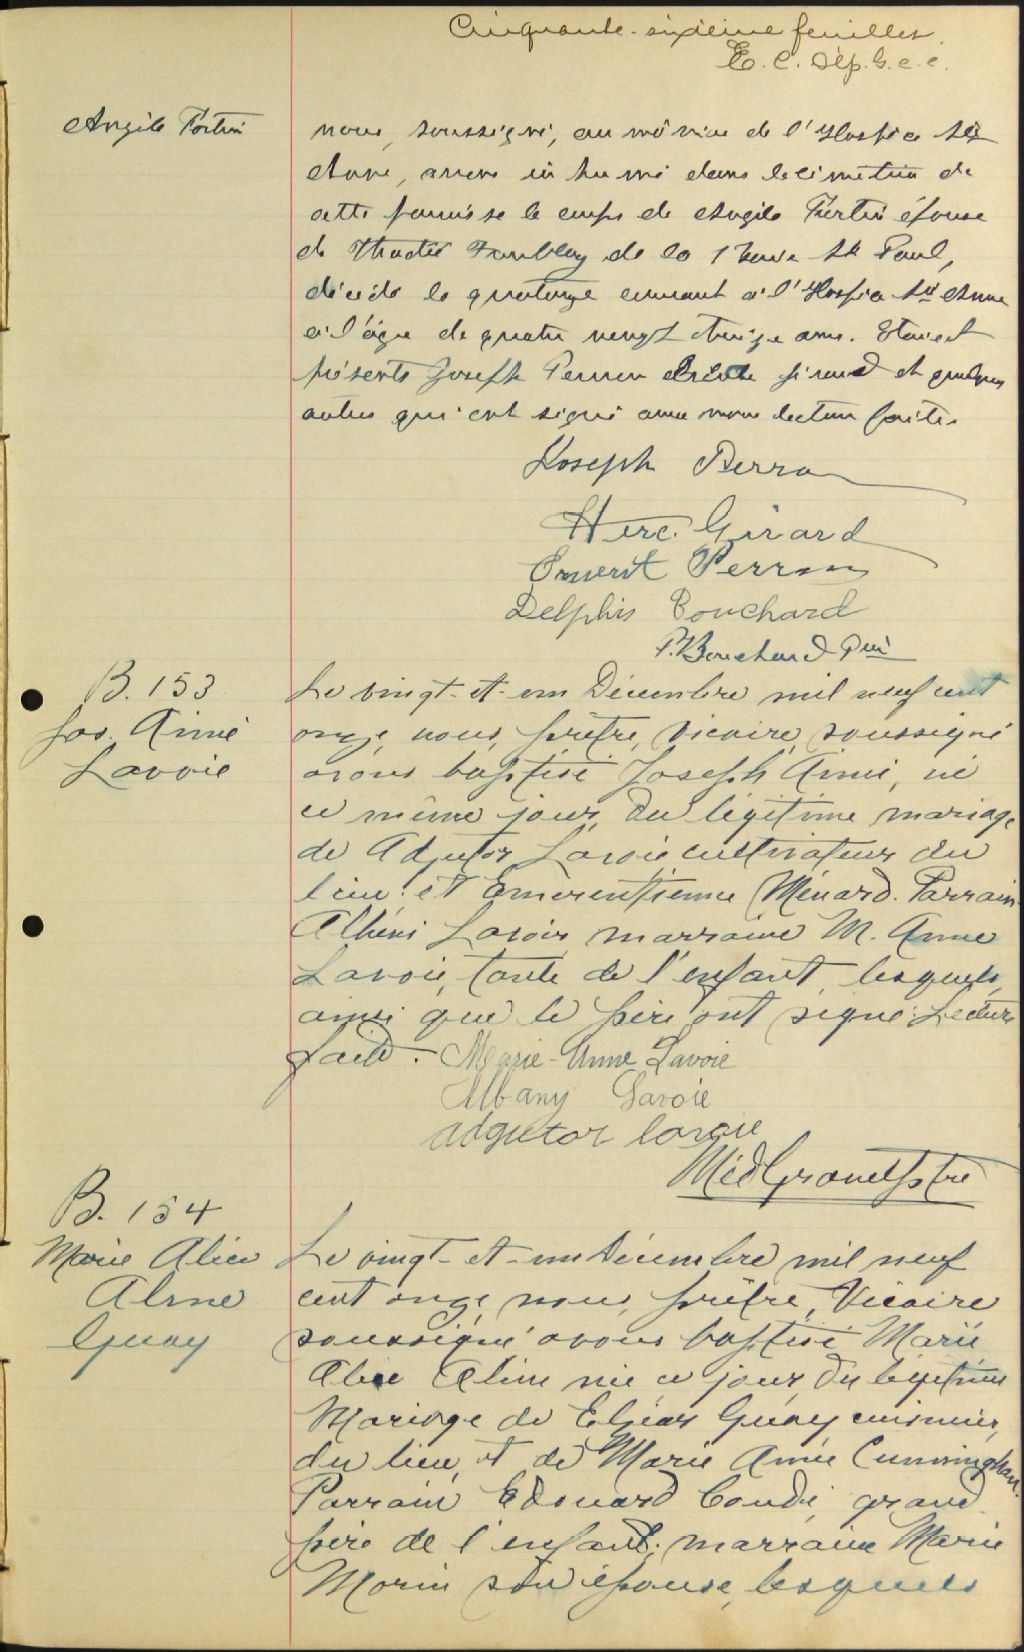 Cinquante-sixième feuillet.
E. C. Dép. G. C. C.
Angèle Fortin
nous, soussigné, aumônier de l'Hospice Ste
Anne, avons inhumé dans le cimetière de
cette paroisse le corps de Angèle Fortin épouse
de Tremblay de la Baie St Paul,
décédée le quatorze courant à l'Hospice Ste Anne
à l'âge de quatre vingt treize ans. Etaient
présents Joseph Perron Girard et quelques
autres qui ont signé avec nous lecture faite.
Joseph Perron
Herc. Girard
Ernest Perron
Delphis Bouchard
P. Bouchard Ptre
B. 153
Jos. Aimé
Lavoie
Le vingt-et-un Décembre mil neuf cent
onze, nous, prêtre, Vicaire soussigné
avons baptisé Joseph Aimé, né
ce même jour, du légitime mariage
de Adjutor Lavoie cultivateur du
lieu et Emérentienne Ménard. Parrain
Albéni Lavoie marraine M. Anne
Lavoie, tante de l'enfant, lesquels,
ainsi que le père ont signé. Lecture
faite. Marie-Anne Lavoie
Albany Lavoie
adjutor lavoie
ptre
B. 154
Marie Alice
Aline
Guay
Le vingt-et-un Décembre mil neuf
cent onze, nous, prêtre, Vicaire
soussigné avons baptisé Marie
Alice Aline née ce jour, du légitime
Mariage de Elzéar Guay cuisinier,
du lieu, et de Marie Annie Cunningham.
Parrain Edouard Boudé, grand
père de l'enfant; marraine Marie
Morin son épouse, lesquels